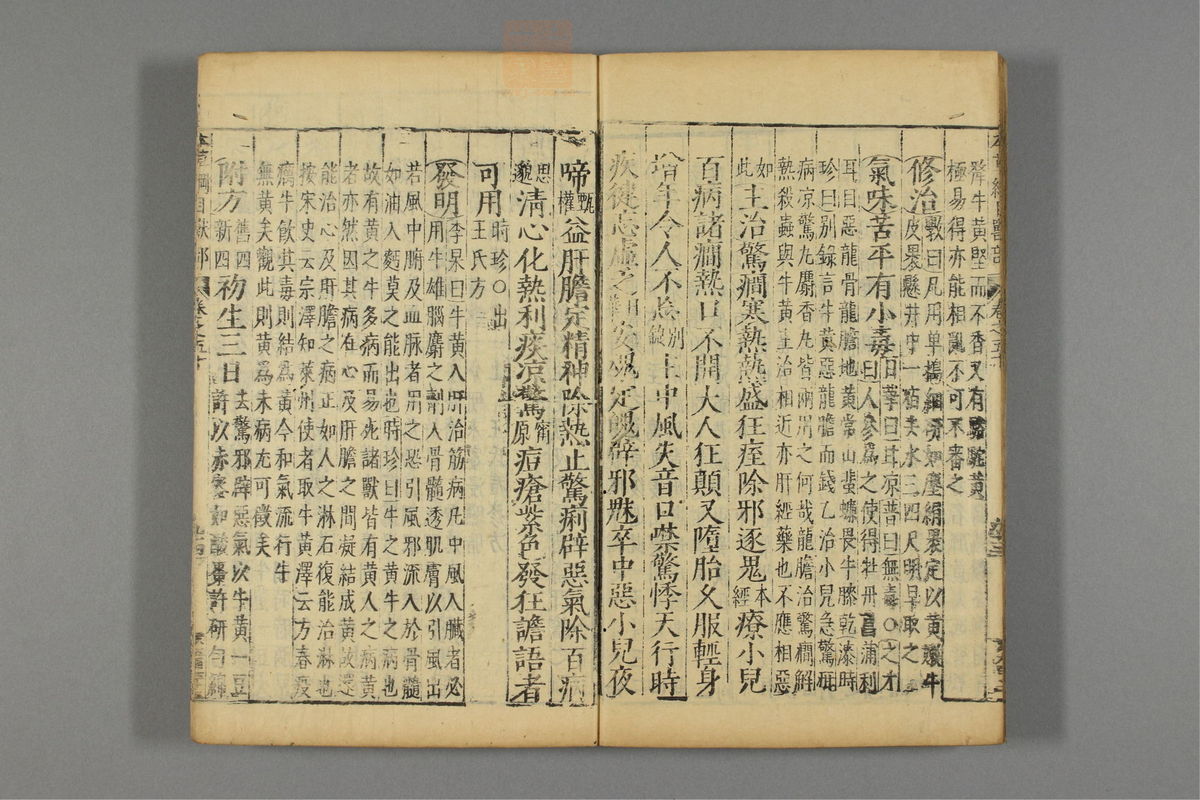 犛牛黃堅而不香又有駱駝黃
極易得亦能相亂不可不審之
修治斆曰凡用單搗細研如塵絹裹定以黃嫩牛
皮裹懸井中一宿去水三四尺明早取之
氣味苦平有小毒日華曰甘凉普曰無毒○之才
曰人參為之使得牡丹菖蒲利
耳目惡龍骨龍膽地黃常山蜚蠊畏牛膝乾漆時
珍曰別錄言牛黃惡龍膽而錢乙治小兒急驚疳
病凉驚丸麝香丸皆兩用之何哉龍膽治驚癇解
熱殺蟲與牛黃主治相近亦肝經藥也不應相惡
如此主治驚癇寒熱熱盛狂痓除邪逐鬼本經療小兒
百病諸癇熱口不開大人狂顛又墮胎久服輕身
增年令人不忘別錄主中風失音口噤驚悸天行時
疾健忘虛乏日華安魂定魄辟邪魅卒中惡小兒夜
啼甄權益肝膽定精神除熱止驚痢辟惡氣除百病
思邈清心化熱利痰凉驚甯原痘瘡紫色發狂譫語者
可用時珍○出王氏方
發明李杲曰牛黃入肝治筋病凡中風入臟者必
用牛雄腦麝之劑入骨髓透肌膚以引風出
若風中腑及血脉者用之恐引風邪流入於骨髓
如油入麪莫之能出也時珍曰牛之黃牛之病也
故有黃之牛多病而易死諸獸皆有黃人之病黃
者亦然因其病在心及肝膽之間凝結成黃故還
能治心及肝膽之病正如人之淋石復能治淋也
按宋史云宗澤知萊州使者取牛黃澤云方春疫
癘牛飲其毒則結為黃今和氣流行牛
無黃矣觀此則黃為牛病尤可徵矣
附方舊四新四初生三日去驚邪辟惡氣以牛黃一豆
許以赤蜜如酸棗許研勻綿